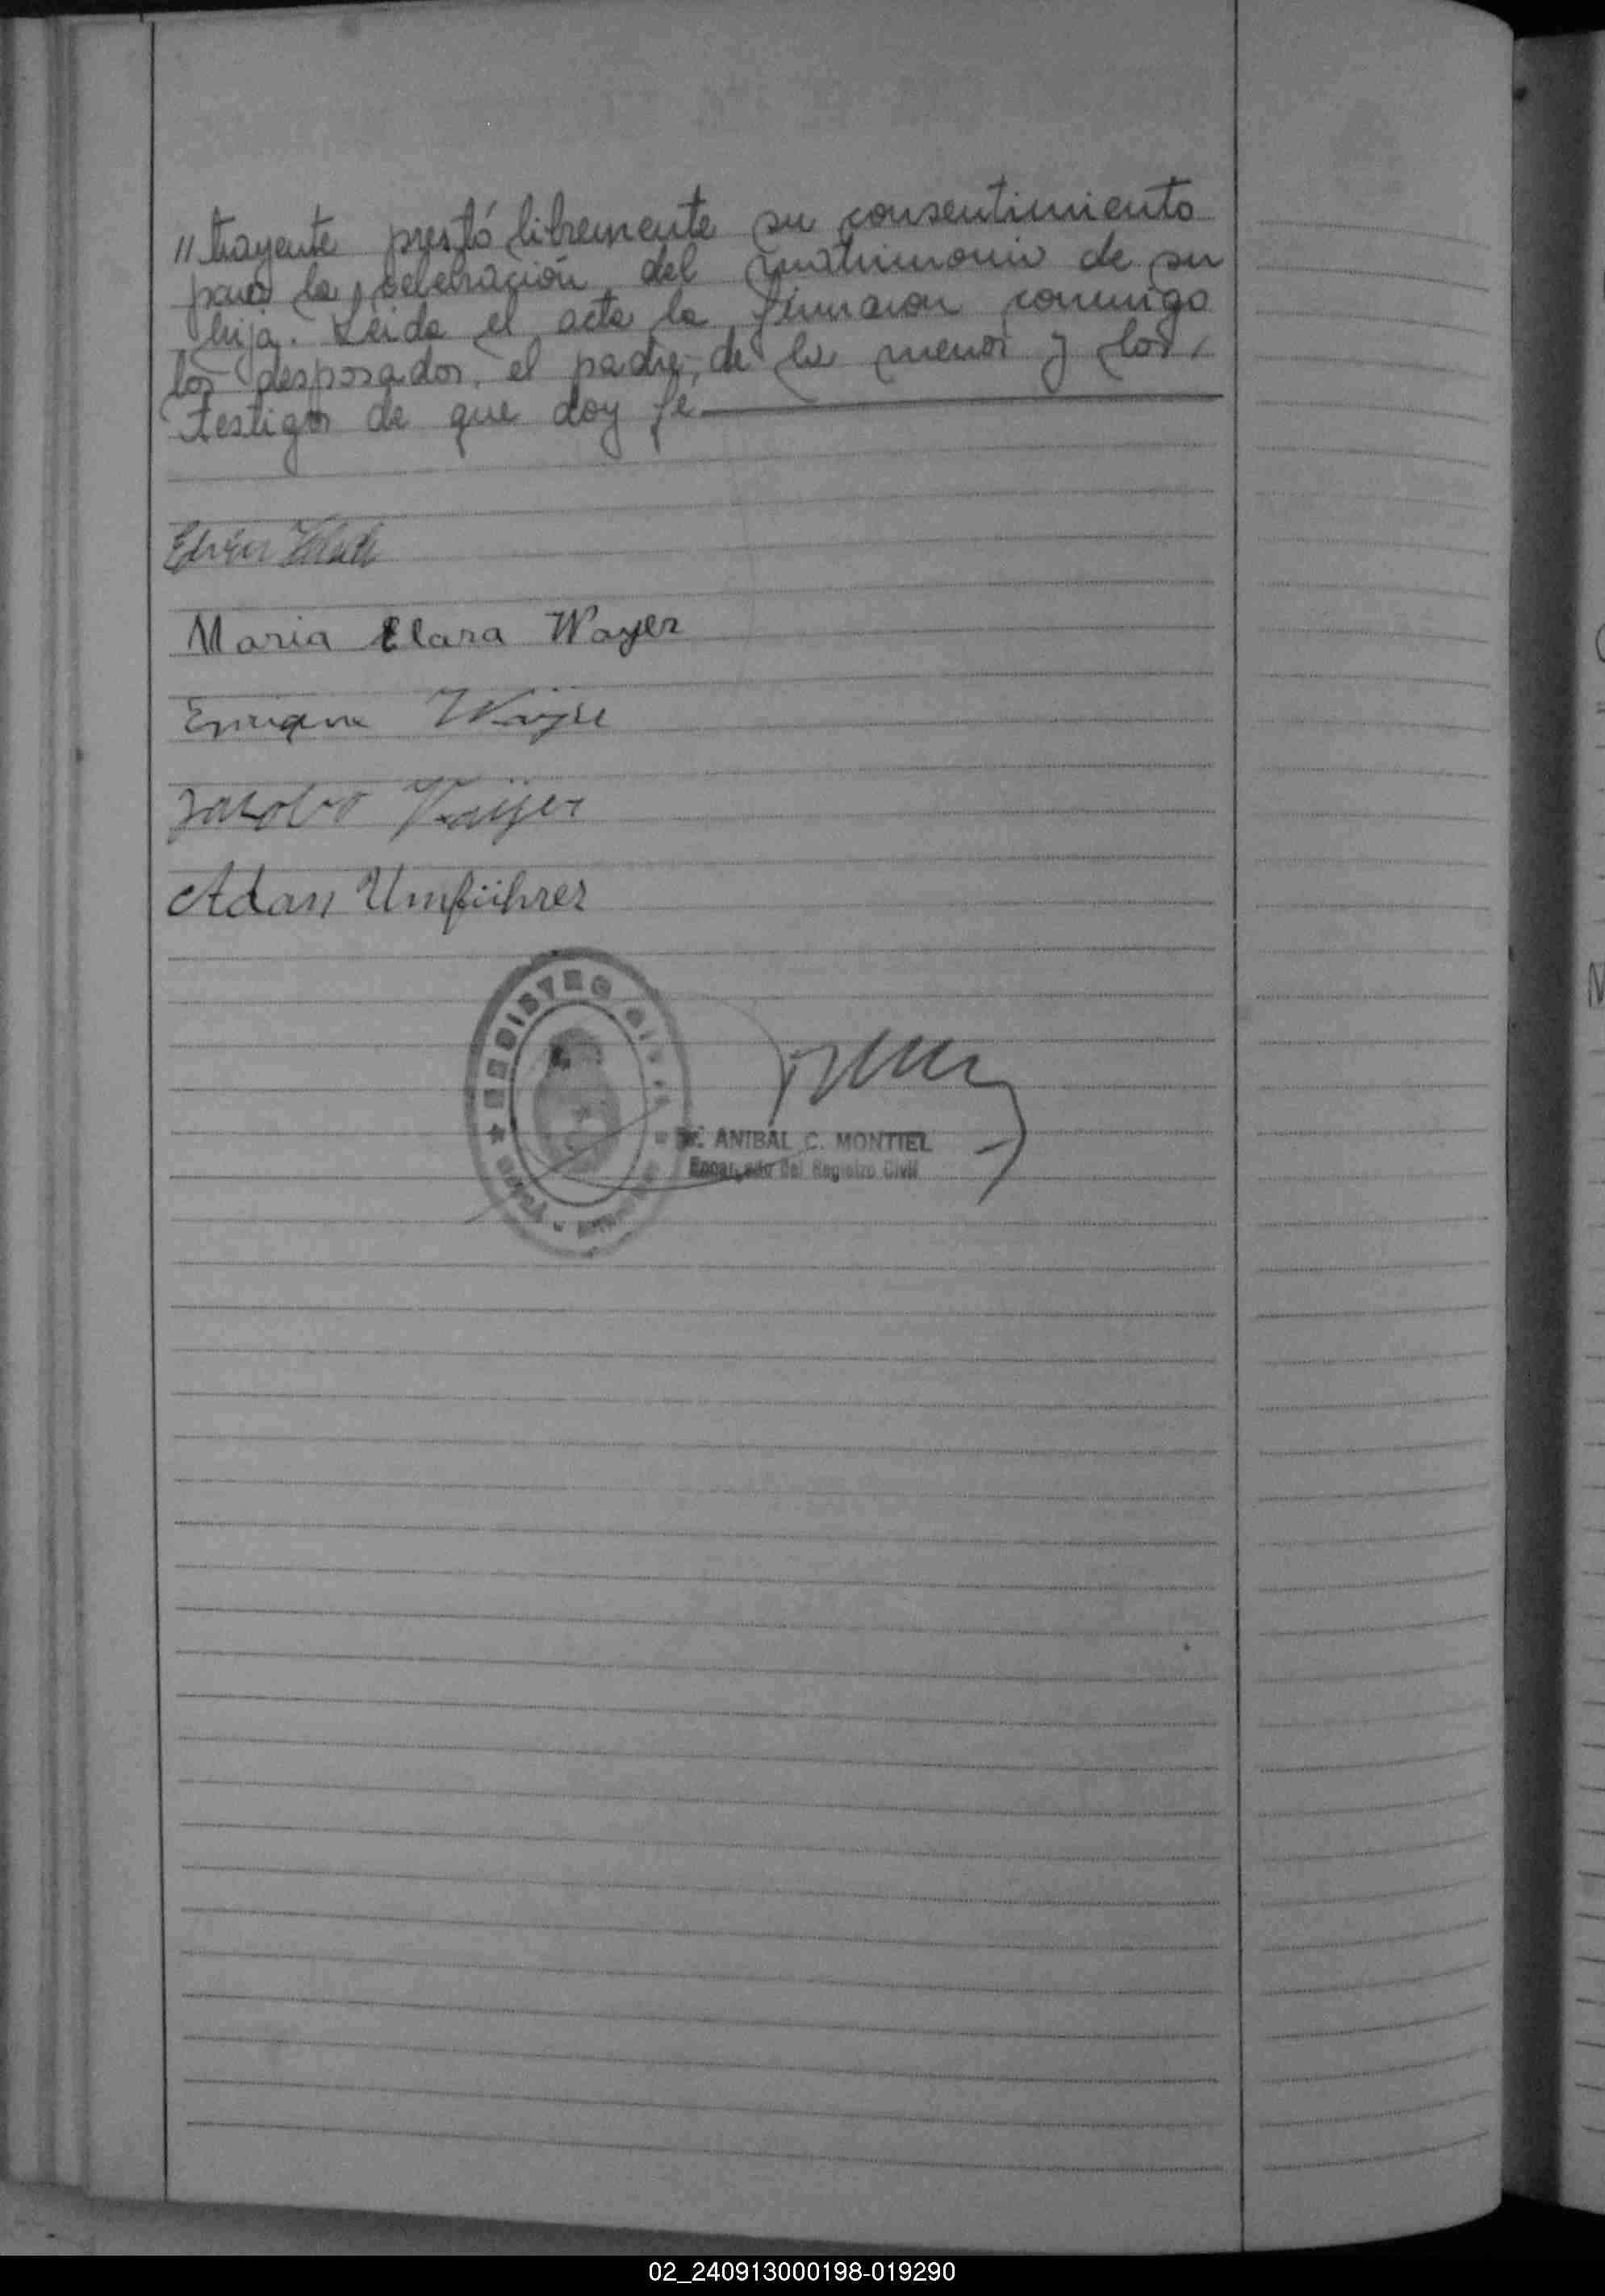 "trayente prestó libremente su consentimiento
para la celebración del matrimonio de su
hija. Leida el acta la firmaron conmigo
los desposados, el padre de la menor y los
testigos de que doy fe.
Maria Clara Wayer
Enrique
Jacobo
Adan Umführer
REGISTRO CIVIL
ANIBAL C. MONTIEL
Encargado del Registro Civil
02_240913000198-019290